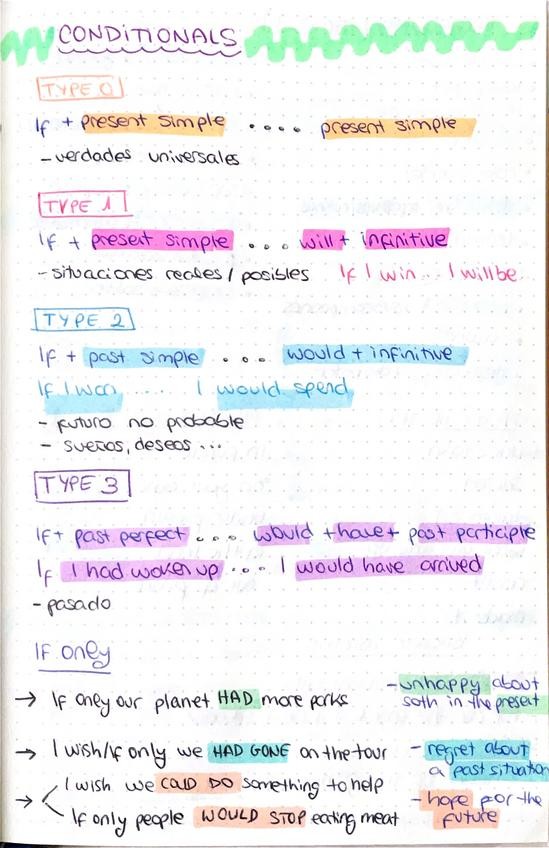 CONDITIONALS
TYPE 0
If + present simple .... present simple
- verdades universales
TYPE 1
If + present simple ... will + infinitive
- situaciones reales / posibles If I win ... I will be
TYPE 2
If + past simple .... would + infinitive
If I won ..... I would spend
- futuro no probable
- sueños, deseos ...
TYPE 3
If + past perfect .... would + have + past participle
If I had woken up .... I would have arrived
- pasado
If only
→ If only our planet HAD more parks - unhappy about
soth in the present
→ I wish/If only we HAD GONE on the tour - regret about
a past situation
→ I wish we COULD DO something to help
If only people WOULD STOP eating meat - hope for the
future